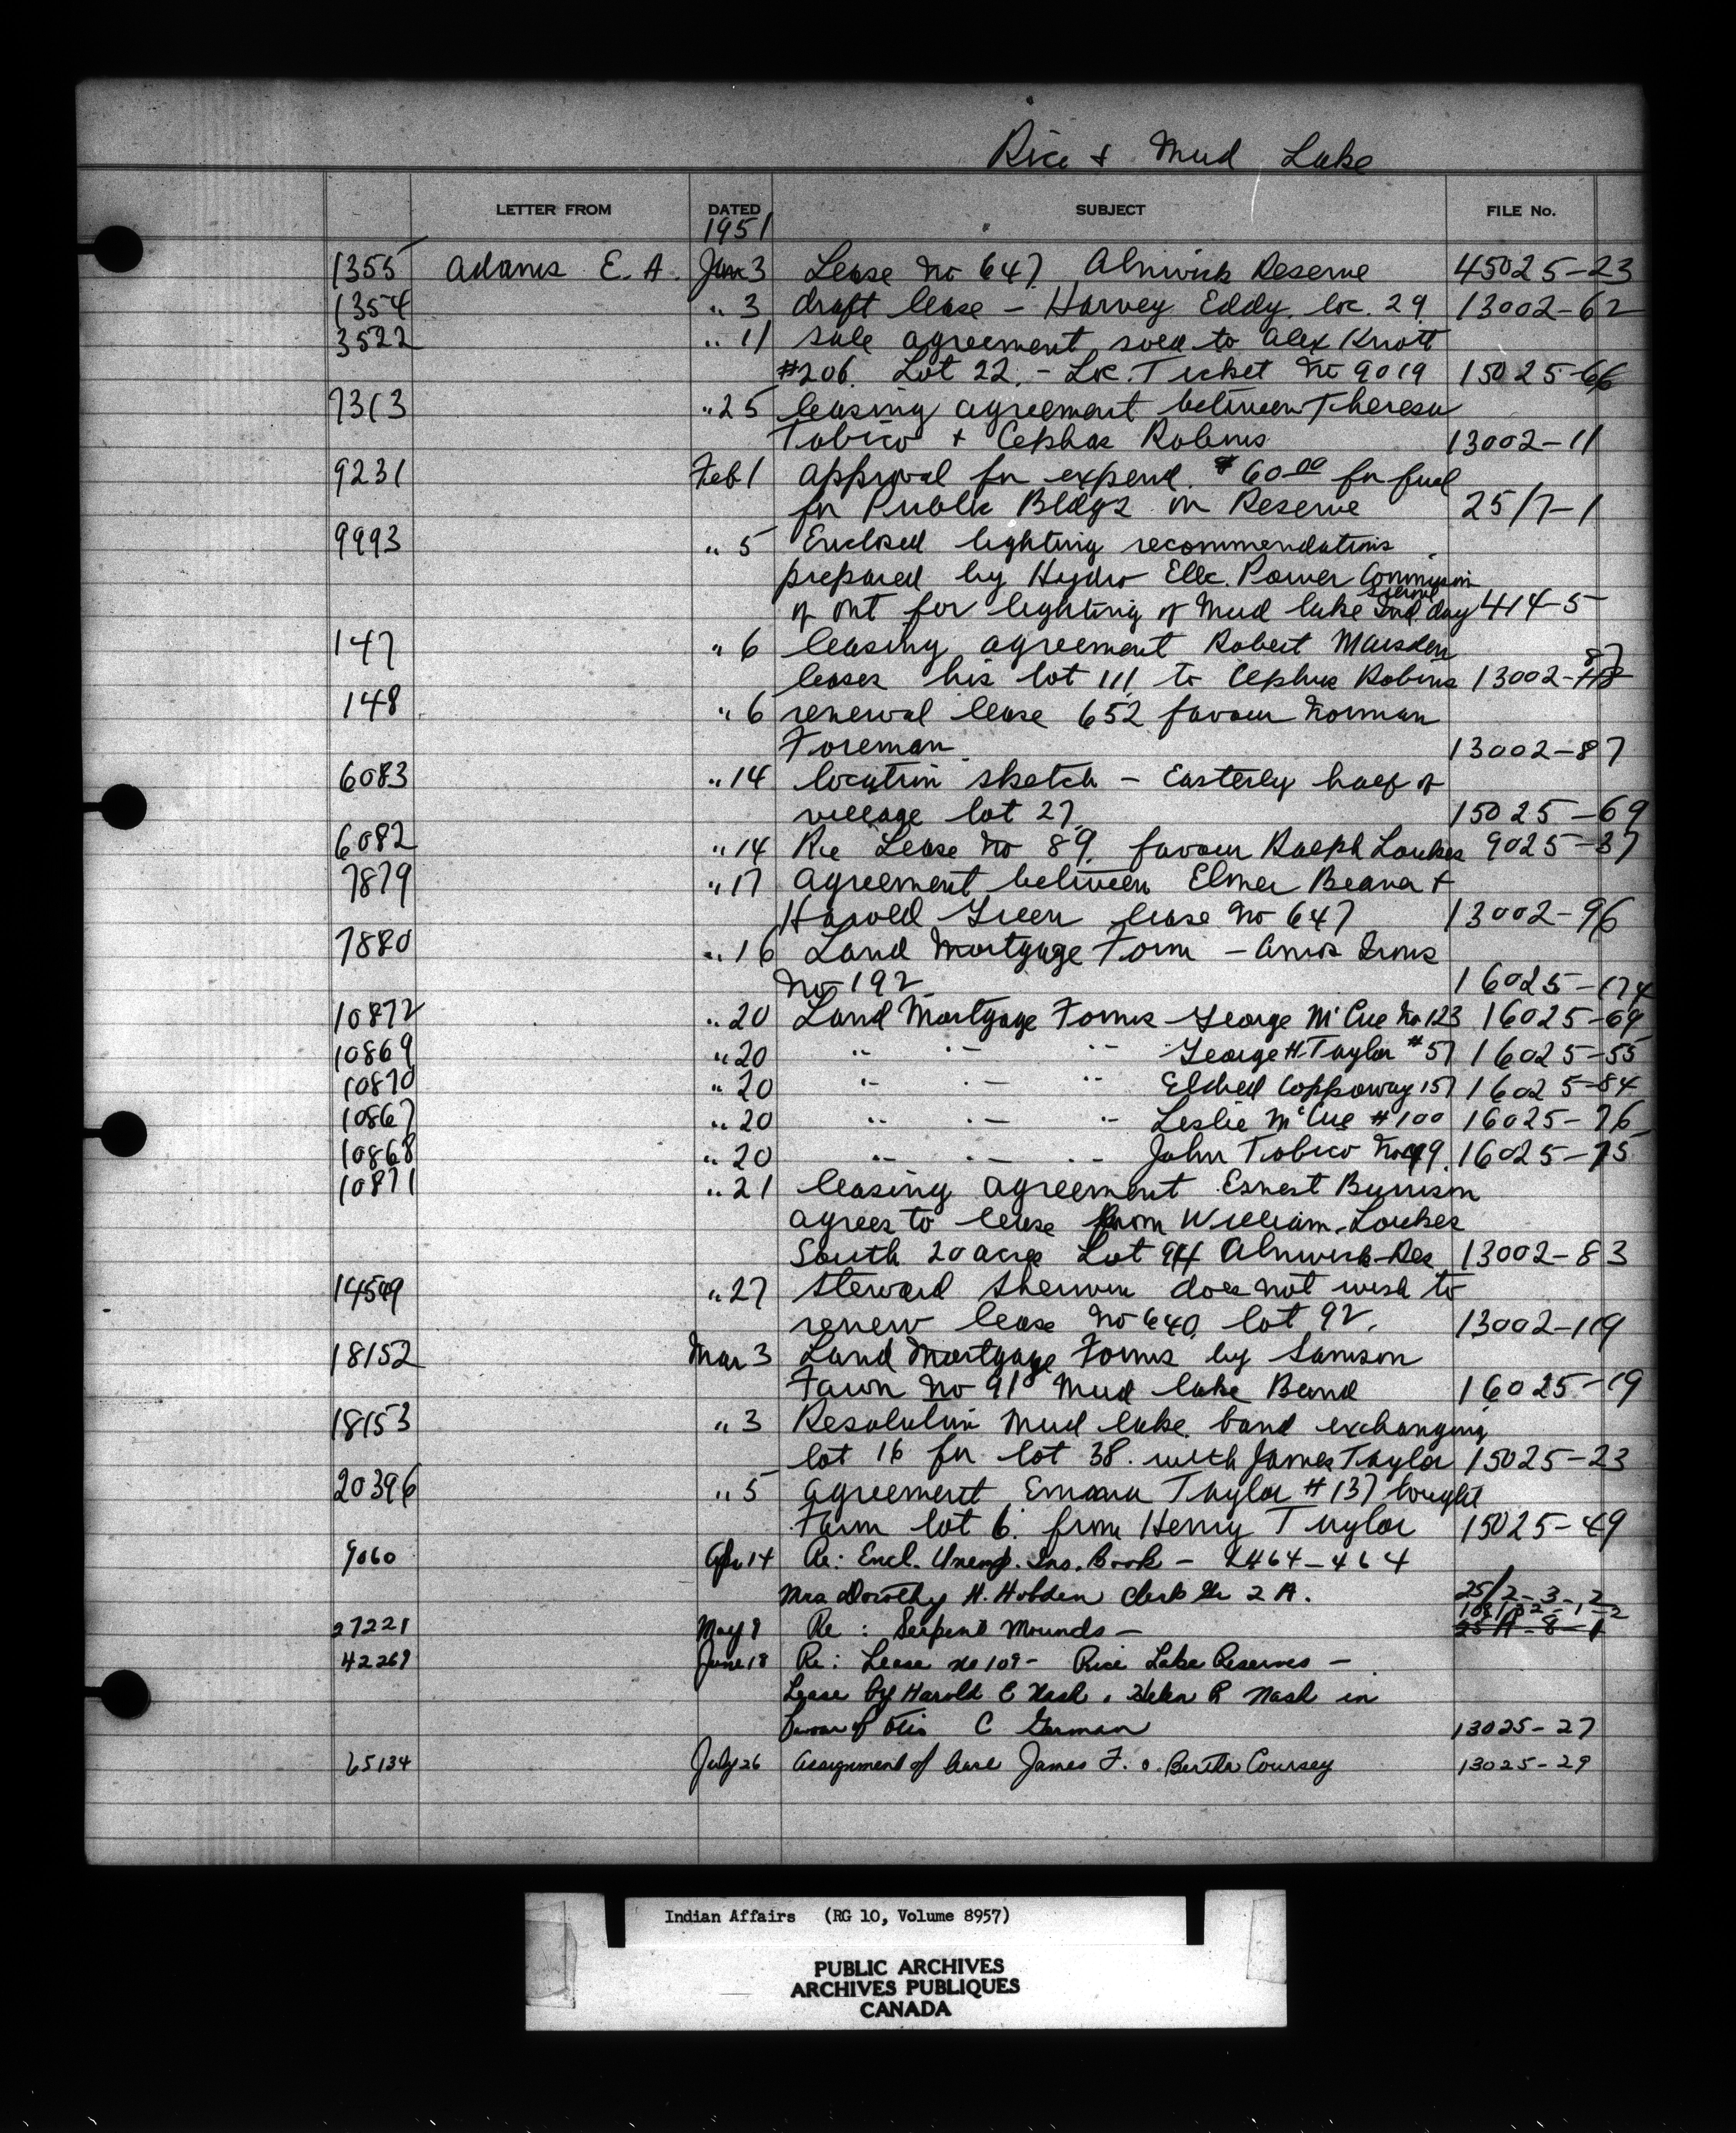 Rice & Mud Lake
LETTER FROM DATED SUBJECT FILE No.
1951
1355 Adams E. A. Jan 3 Lease No 647 Alnwick Reserve 45025-23
1354 " 3 draft lease - Harvey Eddy. loc. 29. 13002-62
3522 " 11 sale agreement sold to Alex Knott
#206. Lot 22. - Loc. Ticket No 9019 15025-66
7313 " 25 leasing agreement between Theresa
Tobico + Cephas Robins 13002-11
9231 Feb 1 approval for expend. $60.00 for fuel
for Public Bldgs on Reserve 25/7-1
9993 " 5 Enclosed lighting recommendations
prepared by Hydro Elec. Power Commission
of Ont for lighting of Mud Lake Ind. day School 414-5
147 " 6 leasing agreement Robert Marsden
leases his lot 111 to Cephus Robins 13002-87
148 " 6 renewal lease 652 favour Norman
Foreman 13002-87
6083 " 14 location sketch - Easterly half of
village lot 27. 15025-69
6082 " 14 Re Lease No 89. favour Ralph Loukes 9025-37
7879 " 17 agreement between Elmer Beaver +
Harold Green lease No 647 13002-96
7880 " 16 Land Mortgage Form - Amos Irons
No 192 16025-174
10872 " 20 Land Mortgage Forms George McCue No 123 16025-69
10869 " 20 " " " George H. Taylor #57 16025-55
10870 " 20 " " " Eldred Coppoway 157 16025-84
10867 " 20 " " " Leslie McCue #100 16025-76
10868 " 20 " " " John Tobico No 49. 16025-75
10871 " 21 leasing agreement Ernest Burison
agrees to lease from William Loukes
South 20 acres Lot 94 Alnwick Res 13002-83
14549 " 27 Steward Sherwin does not wish to
renew lease No 640. lot 92. 13002-119
18152 Mar 3 Land Mortgage Forms by Samson
Fawn No 91 Mud Lake Band 16025-19
18153 " 3 Resolution Mud Lake band exchanging
lot 16 for lot 38. with James Taylor 15025-23
20396 " 5 agreement Emma Taylor #137 bought
Farm lot 6. from Henry Taylor 15025-49
9060 Apr 14 Re: Encl. Unemp. Ins. Book - L464-464
Mrs Dorothy H. Hobden Clerk Gr 2 A. 25/2-3-2
27221 May 8 Re: Serpent Mounds -
42269 June 18 Re: Lease No 109 - Rice Lake Reserves -
Lease by Harold E Nash & Helen R Nash in
favour of Otis C German 13025-27
65134 July 26 Assignment of lease James F. & Bertha Coursey 13025-29
Indian Affairs (RG 10, Volume 8957)
PUBLIC ARCHIVES
ARCHIVES PUBLIQUES
CANADA